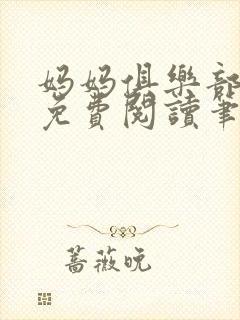 妈妈俱樂部
免費閱讀筆
蔷薇晚